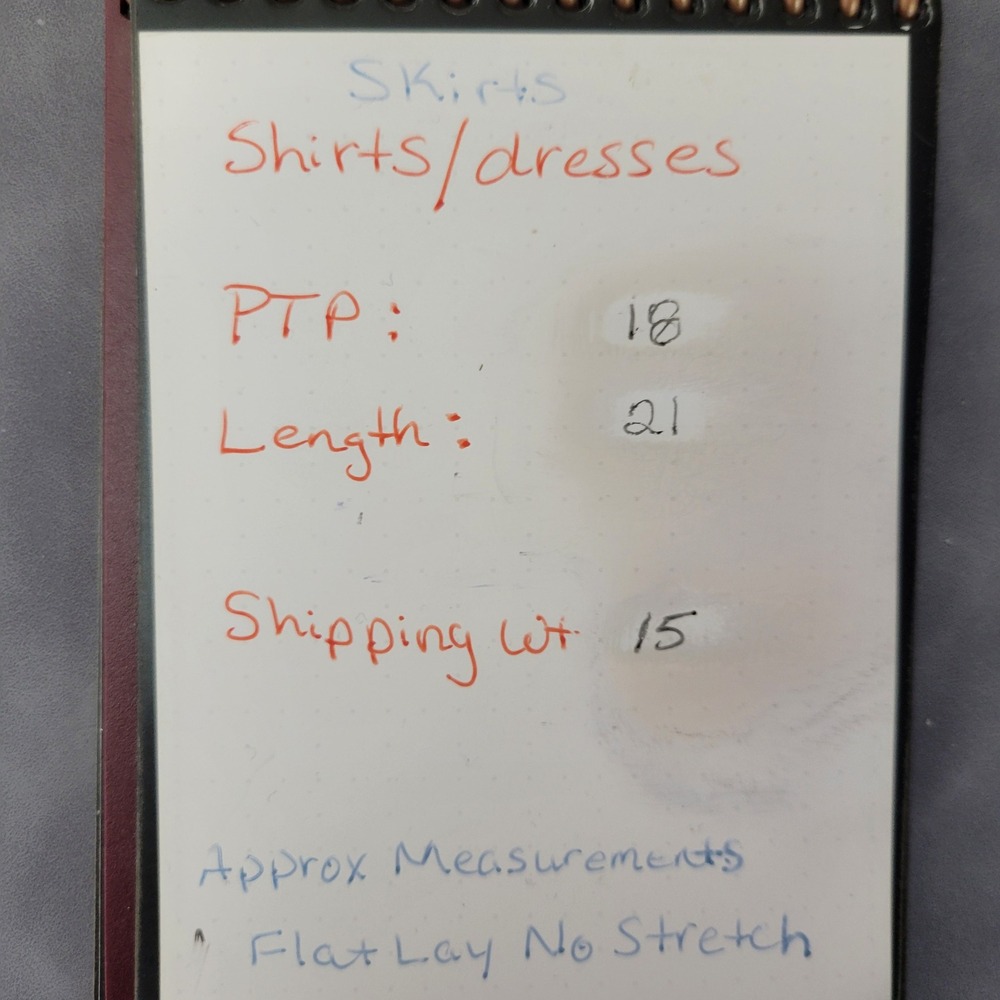 Skirts
Shirts/dresses
PTP: 18
Length: 21
Shipping Wt 15
Approx Measurements
Flat Lay No Stretch